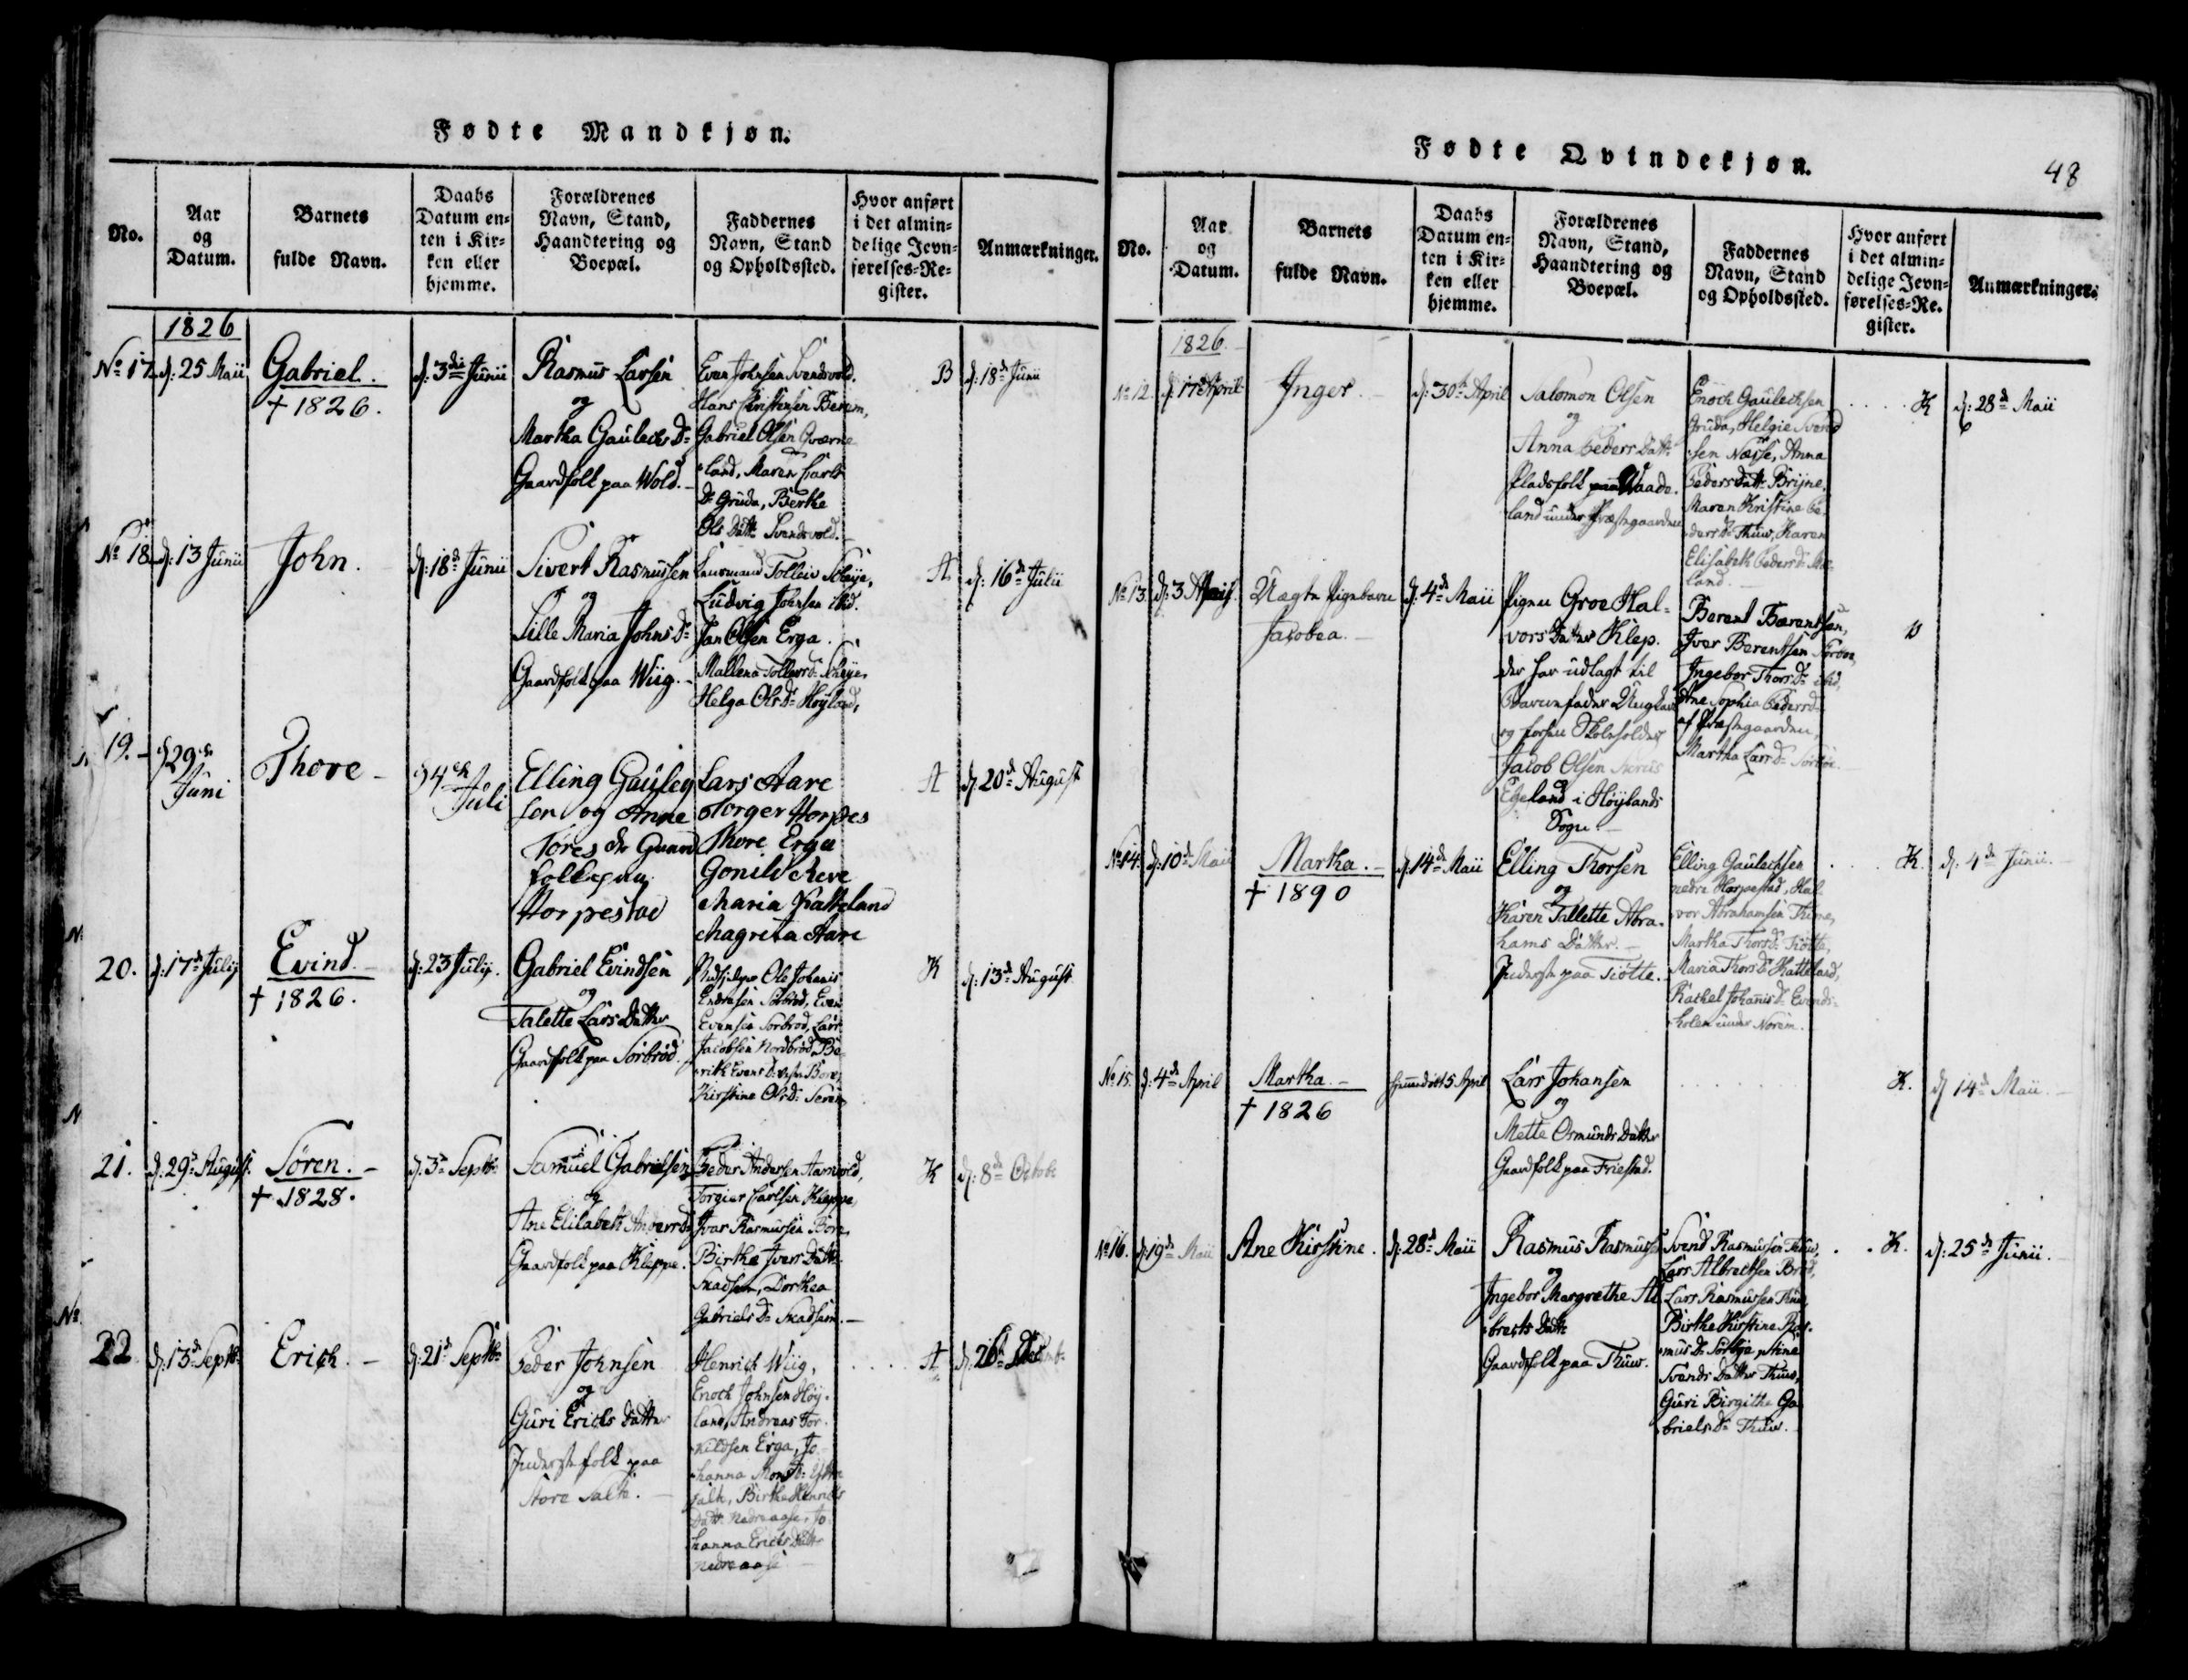 Fødte Mandkjøn.
No.
Aar
og
Datum.
Barnets
fulde Navn.
Daabs
Datum en-
ten i Kir-
ken eller
hjemme.
Forældrenes
Navn, Stand,
Haandtering og
Boepæl.
Faddernes
Navn, Stand
og Opholdssted.
Hvor anført
i det almin-
delige Jevn-
førelses-Re-
gister.
Anmærkninger.
1826
No 17. d: 25 Maii
Gabriel.
† 1826.
d: 3die Junii
Rasmus Larsen
og
Martha Gaulechs Dr
Gaardfolk paa Wold.
Even Johnsen Svendsvold.
Hans Christensen Borem,
Gabriel Olsen Qværne
land, Maren
Dr Gruda, Berthe
Ols Datter Svendsvold.
B
d: 18de Junii
No 18. d: 13 Junii
John.
d: 18de Junii
Sivert Rasmussen
og
Sille Maria Johns Dr
Gaardfolk paa Wiig.
Lensmand Tolleiv
Ludvig Johnsen ibid.
Jan Olsen Erga.
Mallena
Helga Ols Dr Høyland,
A
d: 16de Julii
19.
d 29de
Juni
Thore
d 4de
Juli
Elling Gauleg
sen og Anne
Tores dr Gaard
folk paa
Horpestad
Lars Aare
Torger Horpes
Thore Erga
Gonild Reve
Maria Hatteland
Magreta Aare
A
d: 20de August
20.
d: 17de Julij
Evind.
† 1826.
d: 23 Julij.
Gabriel Evindsen
og
Talette Lars Datter
Gaardfolk paa Sörbröd.
Ole Johanis
Endresen Sörbröd, Even
Evensen Sorbrod, Lars
Jacobsen Nordbröd, Be-
rith Evens Dr Bore,
Kirstine Olsd: Serem
K
d: 13de August
21.
d: 29de August.
Søren.
† 1828.
d: 3de Septbr
Samuel Gabrielsen
og
Ane Elisabeth Anders Dr
Gaardfolk paa Kleppe.
Peder Andersen Aarsvold,
Torgier Carlsen Kleppe,
Ivar Rasmussen Bore,
Birthe Ivers Datter
Skadsem, Dorthea
Gabriels Dr Skadsem.
K
d: 8de Octobr
22
d: 13de Septbr
Erich.
d: 21de Septbr
Peder Johnsen
og
Guri Erichs Datter
Inderste folk paa
Store Salte.
Henrich Wiig,
Enoch Johnsen Høy-
land, Andreas Tor-
kildsen Erga, Jo-
hanna
Salte, Birthe Henrichs
Datt. Nedreaase, Jo-
hanna Erichs Datter
Nedreaase
A
d: 26de
Fødte Qvindekjøn.
48
No.
Aar
og
Datum.
Barnets
fulde Navn.
Daabs
Datum en-
ten i Kir-
ken eller
hjemme.
Forældrenes
Navn, Stand,
Haandtering og
Boepæl.
Faddernes
Navn, Stand
og Opholdssted.
Hvor anført
i det almin-
delige Jevn-
førelses-Re-
gister.
Anmærkninger.
1826.
No 12. d: 17de April
Inger.
d: 30te April
Salomon Olsen
og
Anna Peders Datt:
Pladsfolk paa Waade-
land under Præstegaarden
Enoch Gaulechsen
Gruda, Helgie Svend
sen Næsse, Anna
Peders Datt. Bryne,
Maren Kristine Pe-
ders Dr Thuw, Karen
Elisabeth Peders Dr
land.
K
d: 28de Maii
No 13. d: 3
Uægte Pigebarn
Jacobea.
d: 4de Maii
Pigen Groe Hal-
vors Datter Klep.
der har udlagt til
Barnefader Ungkarl
og forhen Skoleholder
Jacob Olsen
Egeland i Høylands
Sogn.
Berent Bærentsen,
Iver Berentsen
Ingebor Thors Dr ibid,
Ane Sophia Peders Dr
af Præstegaarden,
Martha Lars Dr
No 14. d: 10de Maii
Martha.
† 1890
d: 14de Maii
Elling Thorsen
og
Karen Tallette Abra-
hams Datter.
Inderste paa Tiøtte.
Elling Gaulechsen
nedre Horpestad, Hal-
vor Abrahamsen Thime,
Martha Thors Dr Tiøtte,
Maria Thors Dr Hatteland,
Rachel Johanis Dr Evends-
holen under Norem.
K.
d: 4de Junii.
No 15. d: 4de April
Martha.
† 1826
hjemmedøbt 5 April
Lars Johansen
og
Mette Ormunds Datter
Gaardfolk paa Friestad.
K.
d 14de Maii
No 16. d: 19de Maii
Ane Kirstine.
d: 28de Maii
Rasmus Rasmussen
og
Ingebor Margrethe Al-
brects Datt.
Gaardfolk paa Thuw.
Svend Rasmussen Thuw,
Lars Albrectsen Bröd,
Lars Rasmussen Thuw,
Birthe Kirstine Ras-
mus Dr Sörbye, Stine
Svends Datter Thuw,
Guri Birgithe Ga-
briels Dr Thuw.
K.
d: 25de Junii.